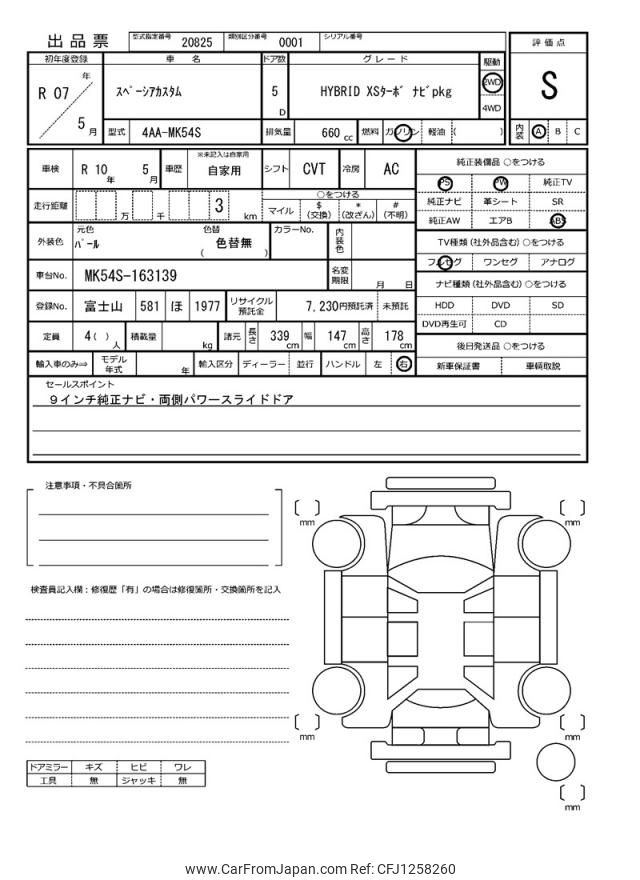 出品票 型式指定番号 20825 類別区分番号 0001 シリアル番号
初年度登録 車名 ドア数 グレード 駆動 評価点
R 07 年 5 月 スペーシアカスタム 5 D HYBRID XSターボ ナビpkg 2WD 4WD S
型式 4AA-MK54S 排気量 660 cc 燃料 ガソリン 軽油 ( ) 内装 A B C
車検 R 10 年 5 月 車歴 ※未記入は自家用 自家用 シフト CVT 冷房 AC
走行距離 万 千 3 km ○をつける マイル $ (交換) * (改ざん) # (不明)
外装色 元色 パール 色替 色替無 ( ) カラーNo. 内装色
車台No. MK54S-163139 名変期限 月 日
登録No. 富士山 581 ほ 1977 リサイクル預託金 7,230円預託済 未預託
定員 4( ) 人 積載量 kg 諸元 長さ 339 cm 幅 147 cm 高さ 178 cm
輸入車のみ⇒ モデル年式 年 輸入区分 ディーラー 並行 ハンドル 左 右
純正装備品 ○をつける
PS PW 純正TV
純正ナビ 革シート SR
純正AW エアB ABS
TV種類 (社外品含む) ○をつける
フルセグ ワンセグ アナログ
ナビ種類 (社外品含む) ○をつける
HDD DVD SD
DVD再生可 CD
後日発送品 ○をつける
新車保証書 車輌取説
セールスポイント
9インチ純正ナビ・両側パワースライドドア
注意事項・不具合箇所
検査員記入欄：修復歴「有」の場合は修復箇所・交換箇所を記入
mm
mm
mm
mm
mm
ドアミラー キズ ヒビ ワレ
工具 無 ジャッキ 無
www.CarFromJapan.com Ref: CFJ1258260